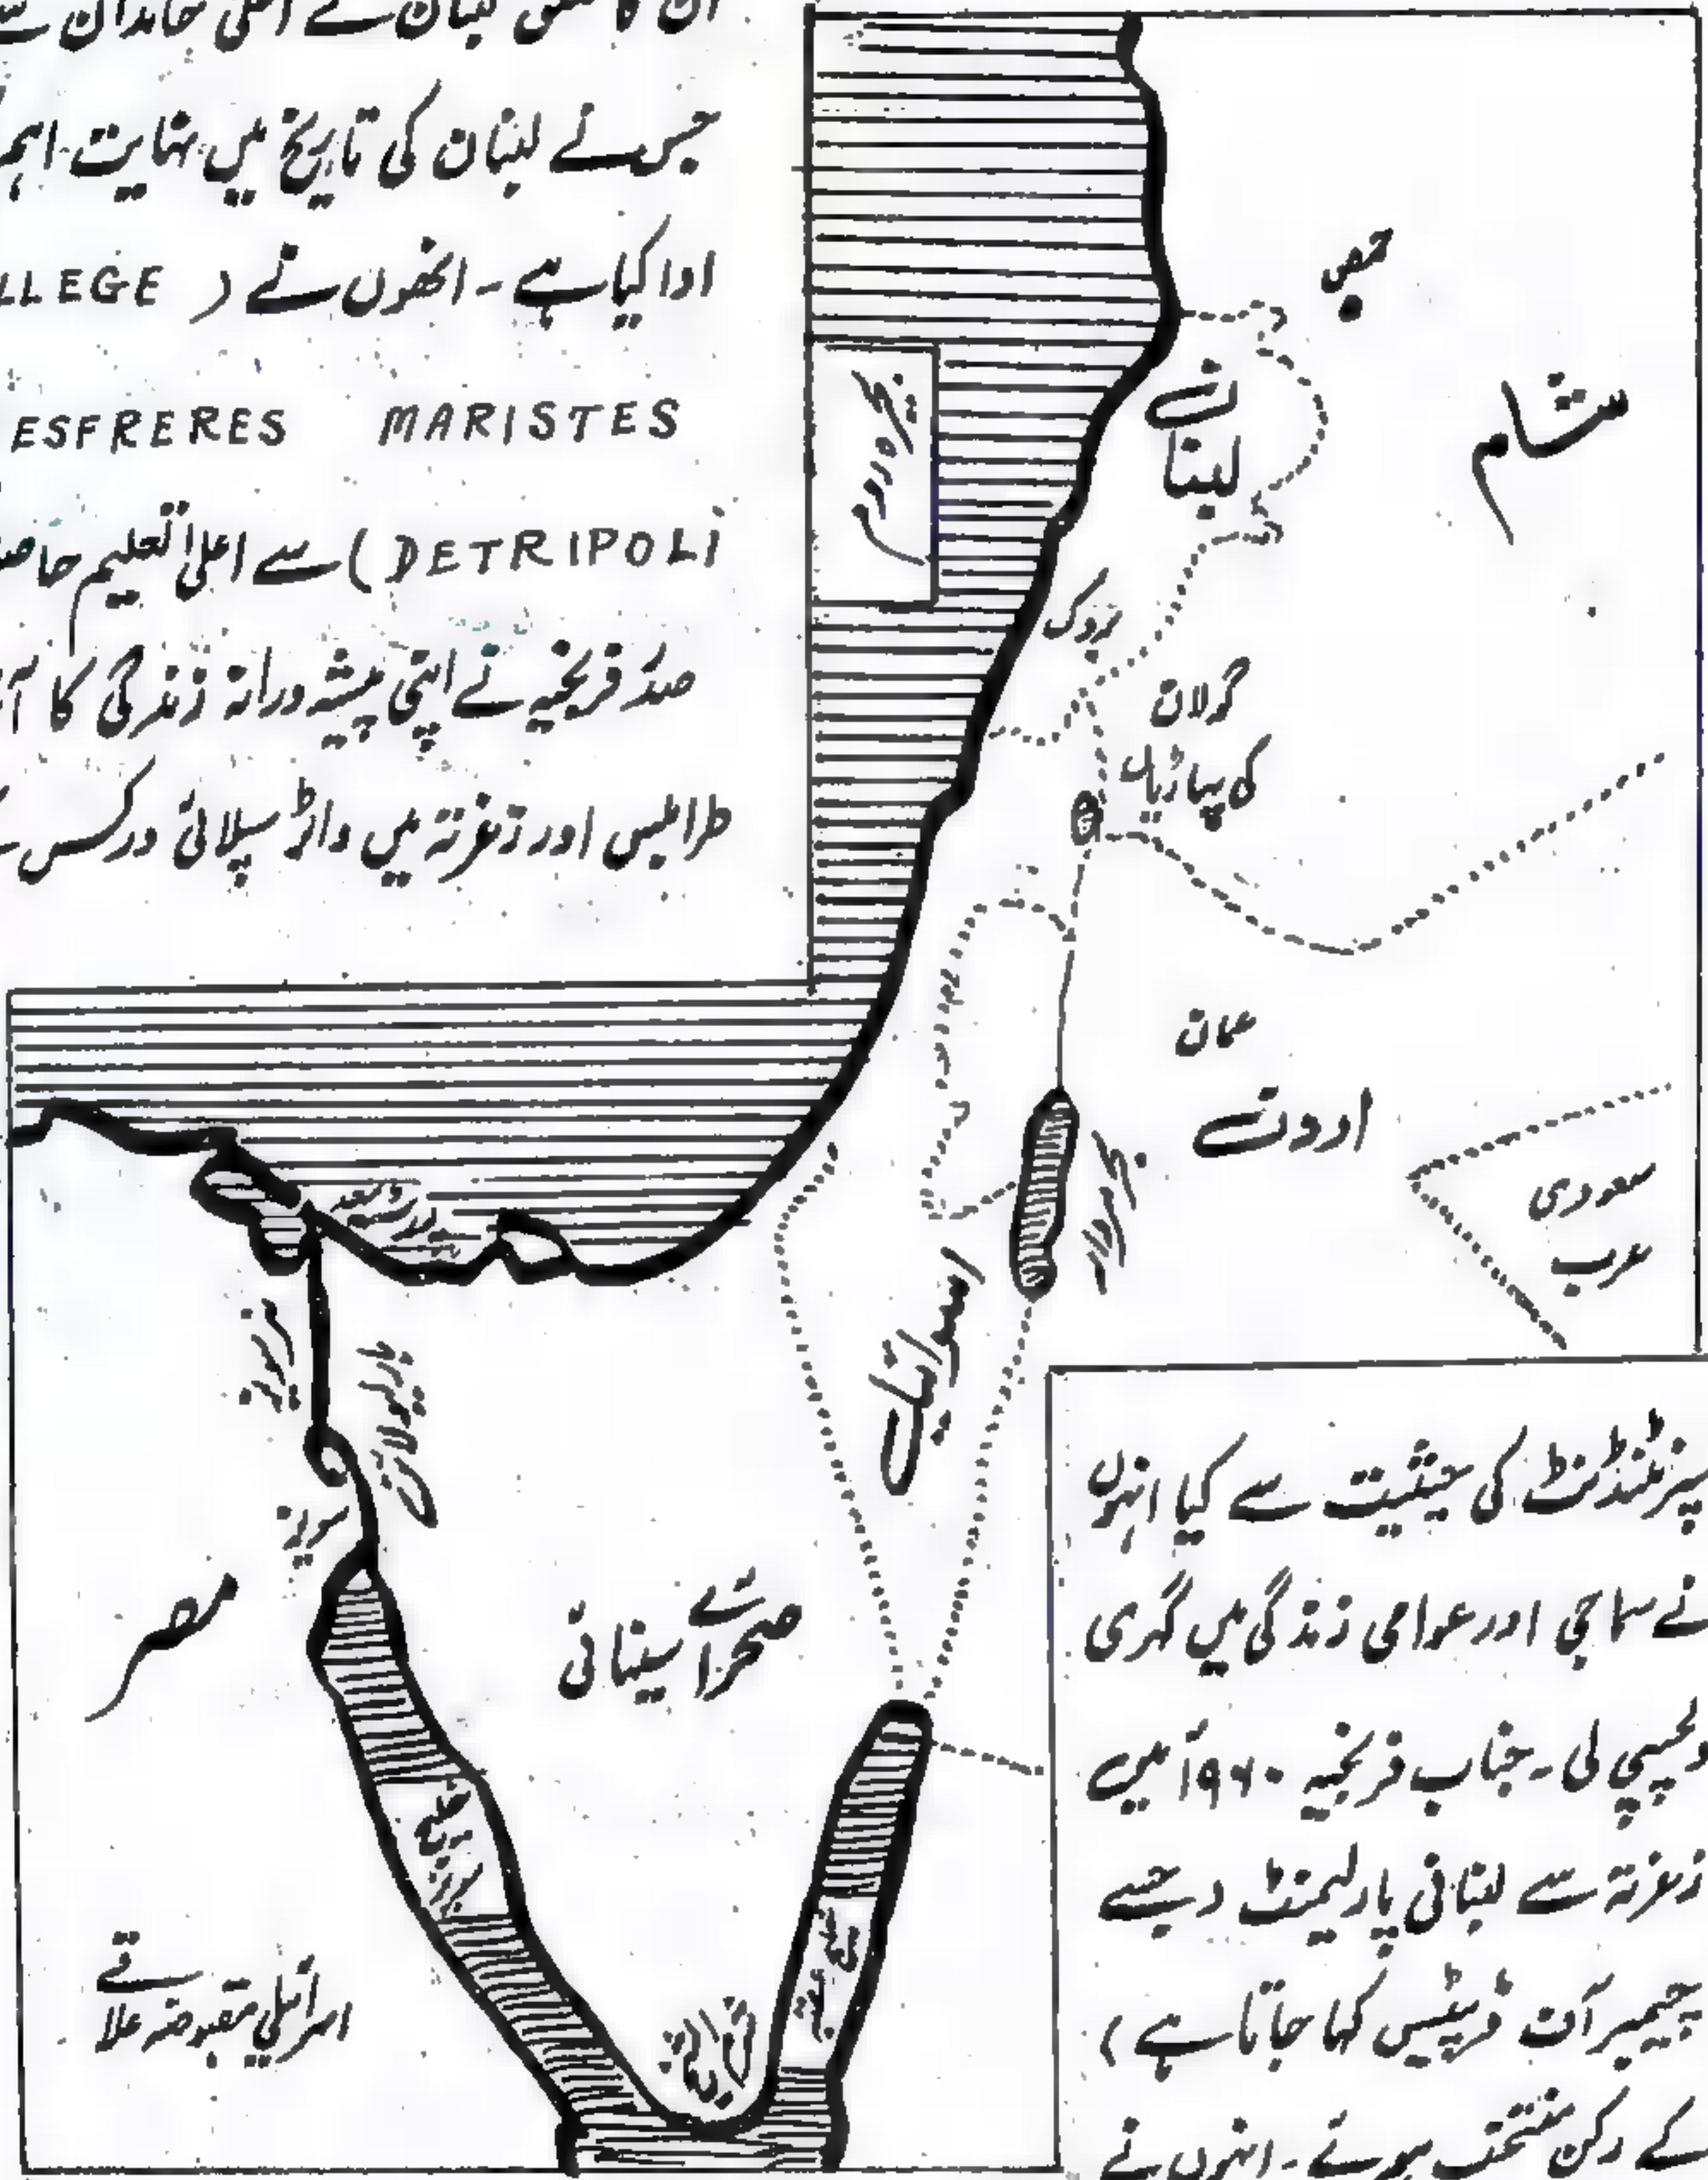 ان کا تعلق لبنان کے اعلیٰ خاندان سے
جس نے لبنان کی تاریخ میں نہایت اہم
ادا کیا ہے - انھوں نے ( LLEGE
ESFRERES MARISTES
DETRIPOLI) سے اعلیٰ تعلیم
صدر فرنجیہ نے اپنی پیشہ ورانہ زندگی کا
طرابلس اور زغرتہ میں واٹر سپلائی ورکس
حمص
شام
لبنان
بحیرہ روم
گولان
کی پہاڑیاں
عمان
اردن
بحر مردار
سعودی
عرب
اسرائیل
پورٹ سعید
نہر سویز
بارلیو لائن
سویز
مصر
صحرائے سینائی
خلیج سویز
خلیج عقبہ
اسرائیلی مقبوضہ علاقے
سپرنٹنڈنٹ کی حیثیت سے کیا انہوں
نے سماجی اور عوامی زندگی میں گہری
دلچسپی لی - جناب فرنجیہ ۱۹۶۰ء میں
زغرتہ سے لبنانی پارلیمنٹ (جسے
چیمبر آف ڈپٹیس کہا جاتا ہے)
کے رکن منتخب ہوئے - انہوں نے